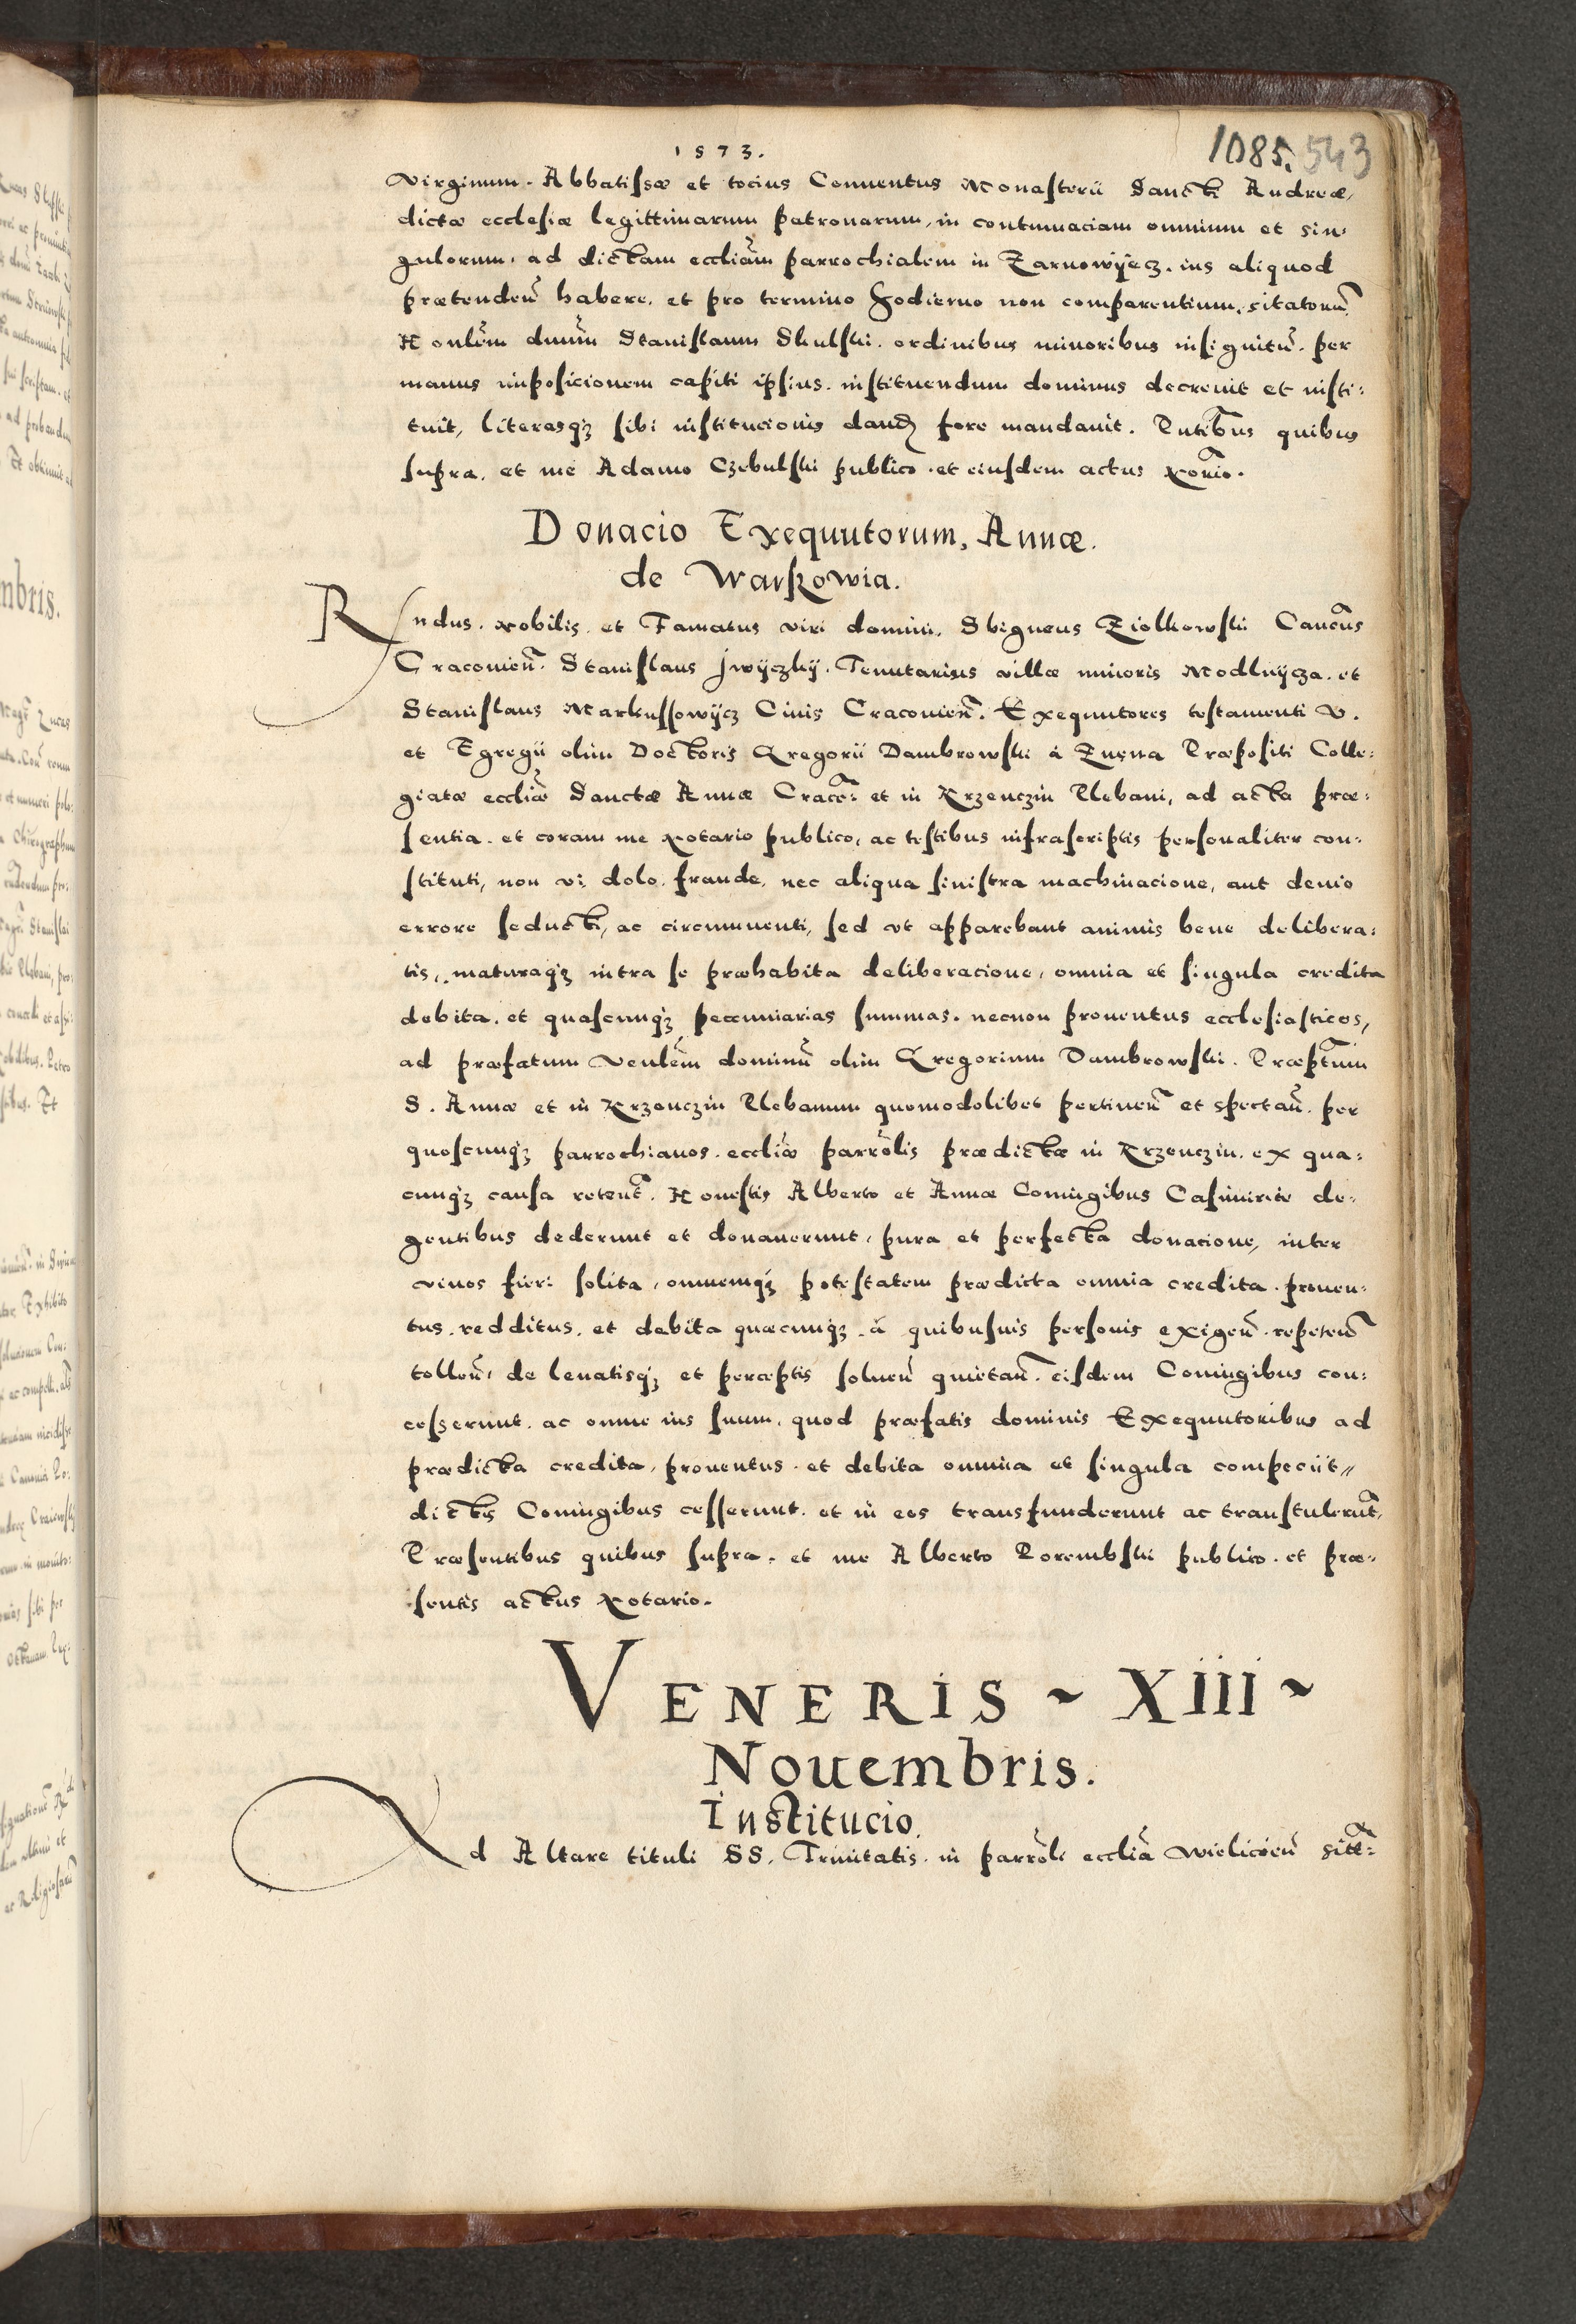 1573.
1085. 543
Virginum. Abbatissæ et tocius Conuentus Monasterii Sancti Andreæ,
dictæ ecclesiæ legittimarum patronarum, in contumaciam omnium et sin:
gulorum, ad dictam eccliam parrochialem in Zarnowÿecz. ius aliquod
prætendeñ habere, et pro termino hodierno non comparentium, citatorũ
Honlem dnum Stanislaum Skulski. ordinibus minoribus insignitũ. per
manus imposicionem capiti ipsius. instituendum dominus decreuit et insti:
tuit, literasqʒ sibi institucionis dand fore mandauit. Pntibus quibus
supra, et me Adamo Czebulski publico et eiusdem actus Norio.
Donacio Exequutorum, Annæ.
de Warkowia.
Rndus. Nobilis. et Famatus viri domini, Sbigneus Ziolkowski Cancus
Cracouieñ. Stanislaus Jwÿczkÿ. Tenutarius villæ minoris Modlnÿcza. et
Stanislaus Markussowÿcz Ciuis Cracouieñ. Exequutores testamenti V.
et Egregii olim Doctoris Gregorii Dambrowski á Præpositi Colle:
giatæ eccliæ Sanctæ Annæ Cracoñ: et in Krzenczin Plebani, ad acta præ:
sentia. et coram me Notario publico, ac testibus infrascriptis personaliter con:
stituti, non vi, dolo, fraude, nec aliqua sinistra machinacione, aut deuio
errore seducti, ac circumuenti, sed vt apparebant animis bene delibera:
tis, maturaqʒ intra se præhabita deliberacione, omnia et singula credita
debita. et quascunqʒ pecuniarias summas. necnon prouentus ecclesiasticos,
ad præfatum Venlem dominũ olim Gregorium Dambrowski. Præptum
S. Annæ et in Krzenczin Plebanum quomodolibet pertineñ et spectañ. per
quoscunqʒ parrochianos. eccliæ parrolis prædictæ in Krzenczin. ex qua:
cunqʒ causa retent. Honestis Alberto et Annæ Coniugibus Casimirię de:
gentibus dederunt et donauerunt, pura et perfecta donacione, inter
viuos fieri solita, omnemqʒ potestatem prædicta omnia credita. prouen:
tus. redditus. et debita quæcunqʒ. á quibusuis personis exigeñ. repeteñ
tolleñ, de leuatisqʒ et perceptis solueñ quietañ. eisdem Coniugibus con:
cesserunt. ac omne ius suum, quod præfatis dominis Exequutoribus ad
prædicta credita, prouentus. et debita omnia et singula compeciit,,
dictis Coniugibus cesserunt. et in eos transfunderunt ac transtulerũt,
Præsentibus quibus supra. et me Alberto Porembski publico. et præ:
sentis actus Notario.
VENERIS ~ XIII ~
Nouembris.
Institucio.
Ad Altare tituli SS. Trinitatis. in parroli ecclia Wielicieñ sitũ: